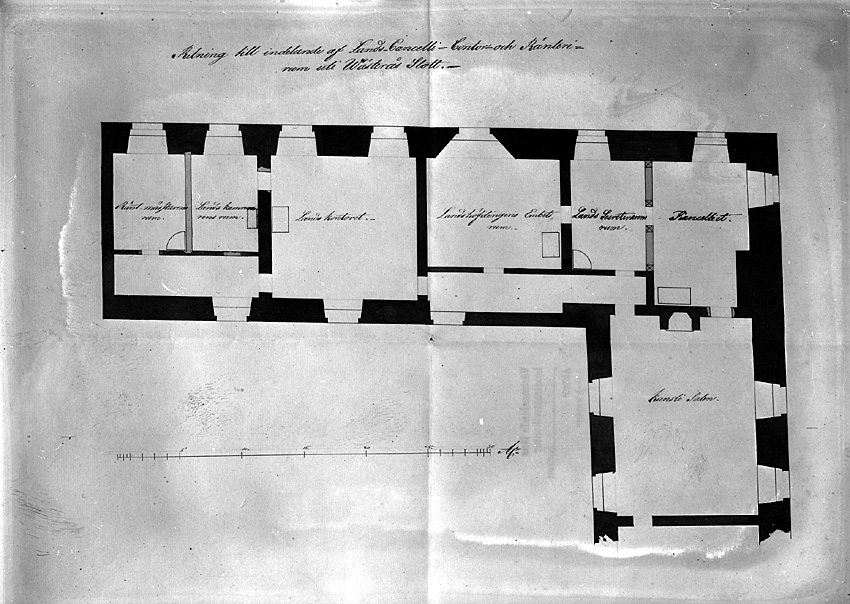 Ritning till indelande af Lands-Cancelli- Contor- och Ränteri-
rum uti Wästerås Slott.-
Ränt mästarens
rum.
Lands kamre-
rens rum.
Lands kontoret.-
Landshöfdingens Embets
rum.-
Lands Secreterarens
rum.
Kancelliet.
Kansli Salon.